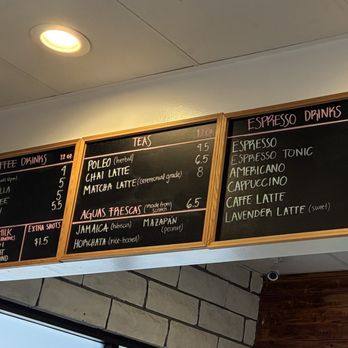 COFFEE DRINKS 12 oz
4
5
5
5
5.5
MILK
EXTRA SHOTS
$1.5
TEAS 12 oz
POLEO (herbal) 4.5
CHAI LATTE 6.5
MATCHA LATTE (ceremonial grade) 8
AGUAS FRESCAS (made from scratch) 6.5
JAMAICA (hibiscus) MAZAPAN (peanut)
HORCHATA (rice-based)
ESPRESSO DRINKS
ESPRESSO
ESPRESSO TONIC
AMERICANO
CAPPUCCINO
CAFFE LATTE
LAVENDER LATTE (sweet)